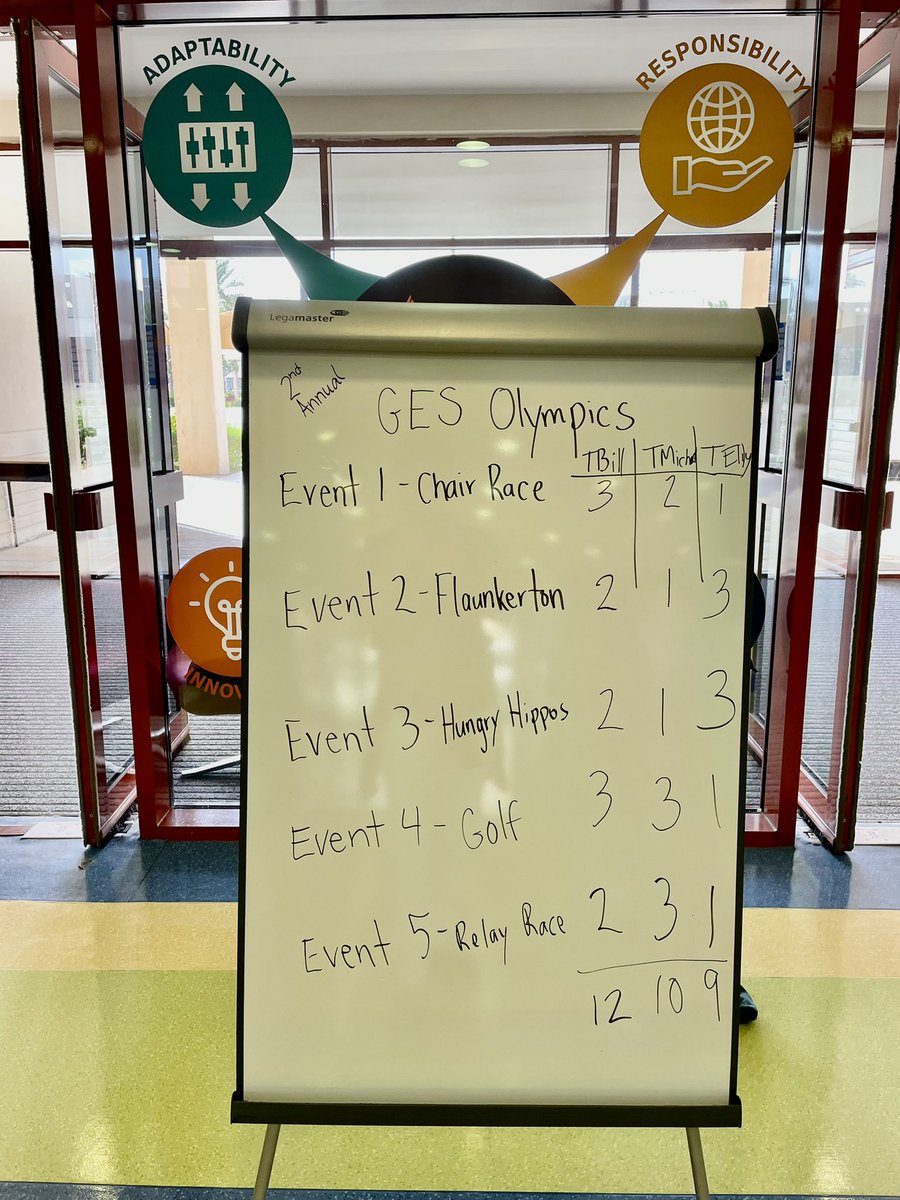 ADAPTABILITY
RESPONSIBILITY
Legamaster
2nd
Annual
GES Olympics
TBill TMicha TElly
Event 1 - Chair Race 3 2 1
Event 2 - Flaunkerton 2 1 3
Event 3 - Hungry Hippos 2 1 3
Event 4 - Golf 3 3 1
Event 5 - Relay Race 2 3 1
12 10 9
INNOV